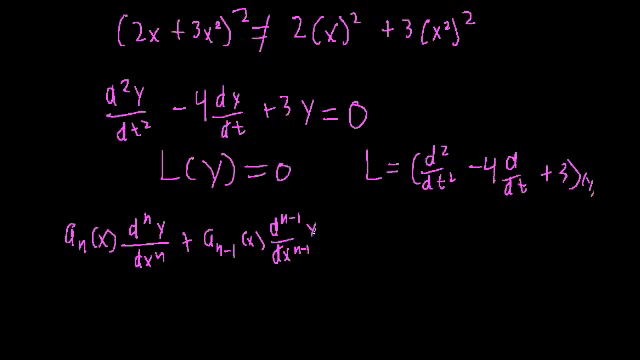 (2x + 3x²)² ≠ 2(x)² + 3(x²)²
d²y/dt² - 4 dy/dt + 3y = 0
L(y) = 0 L = (d²/dt² - 4 d/dt + 3)(y)
aₙ(x) dⁿy/dxⁿ + aₙ₋₁(x) dⁿ⁻¹y/dxⁿ⁻¹